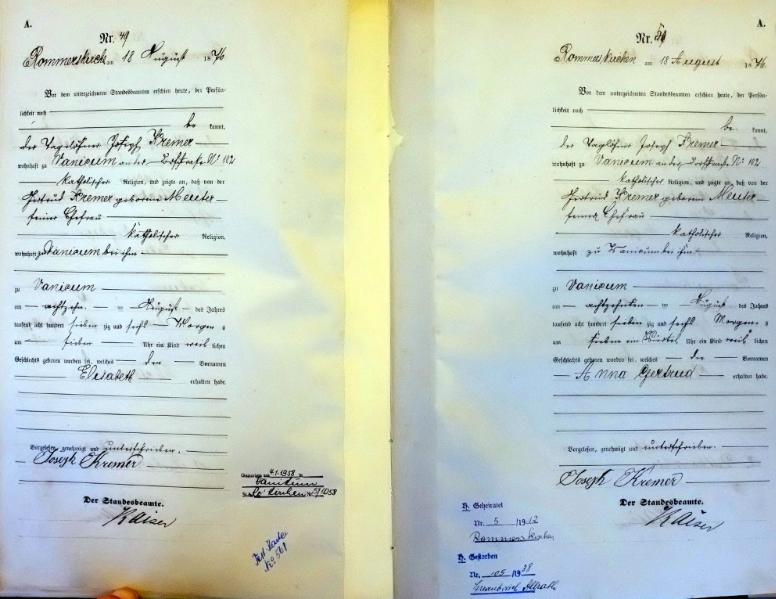 A.
Nr. 49
Rommerskirchen am 18 August 1876
Vor dem unterzeichneten Standesbeamten erschien heute, der Persön-
lichkeit nach
be kannt,
der Tagelöhner Joseph Kremer
wohnhaft zu Vanicum an der Dorfstraße No 102
katholischer Religion, und zeigte an, daß von der
Gertrud Kremer geborene Meuter
seiner Ehefrau
katholischer Religion,
wohnhaft zu Vanicum bei ihm
zu Vanicum
am achtzehn. ten August des Jahres
tausend acht hundert sieben zig und sechs Morgens
um sieben Uhr ein Kind weib lichen
Geschlechts geboren worden sei, welches den Vornamen
Elisabeth erhalten habe.
Vorgelesen, genehmigt und unterschrieben.
Joseph Kremer
Der Standesbeamte.
Kaiser
4.1.1958
Vanikum
A.
Nr. 50
Rommerskirchen am 18 August 1876
Vor dem unterzeichneten Standesbeamten erschien heute, der Persön-
lichkeit nach
be kannt,
der Tagelöhner Joseph Kremer
wohnhaft zu Vanicum an der Dorfstraße No 102
katholischer Religion, und zeigte an, daß von der
Gertrud Kremer geborene Meuter
seiner Ehefrau
katholischer Religion,
wohnhaft zu Vanicum bei ihm
zu Vanicum
am achtzehnten August des Jahres
tausend acht hundert sieben zig und sechs Morgens
um sieben ein Viertel Uhr ein Kind weib lichen
Geschlechts geboren worden sei, welches den Vornamen
Anna Gertrud erhalten habe.
Vorgelesen, genehmigt und unterschrieben.
Joseph Kremer
Der Standesbeamte.
Kaiser
Geheiratet
Nr. 5 /1912
Rommerskirchen
Gestorben
Nr. 105 /1938